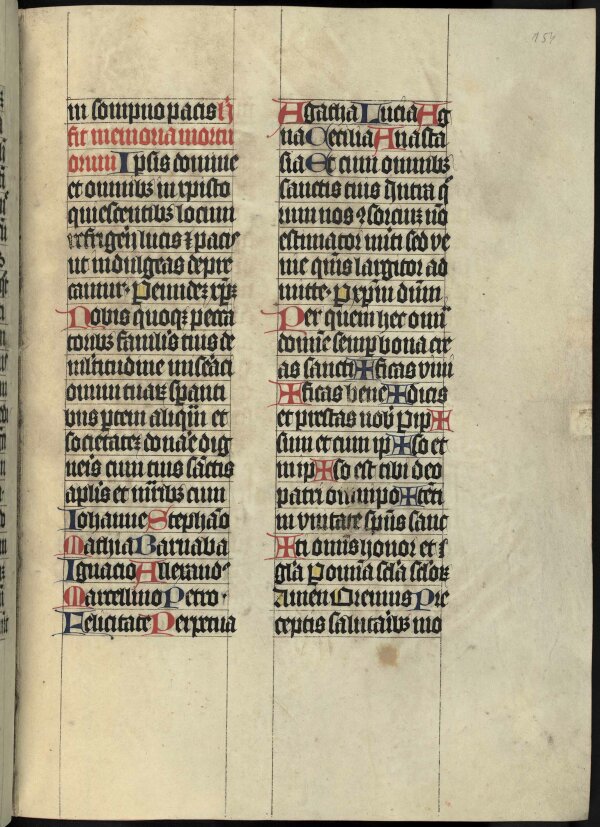 154
in sompno pacis h̄
fit memoria mortu
orum Ipsis domine
et omnibꝫ in xpisto
quiescentibꝫ locum
refrigeij lucis ⁊ pacis
ut indulgeas depre
camur. Peeundeꝫ xp̄ꝫ
Nobis quoqꝫ pecca
toribꝫ famulis tuis de
multitudine miseraci
onum tuaꝝ sperantibꝫ
partem aliquā et
societateꝫ donare dig
neis cum tuis sanctis
aplis et mr̄ibꝫ cum
Iohanne Stephāo
Mathia Barnaba
Ignacio Allexand
Marcellino Petro.
Felicitate Perpetua
Agatha Lucia Ag
na Cecilia Anasta
sia Et cum omnibꝫ
sanctis tuis Intra q̄
rum nos ꝯsorciuꝫ nō
estimator m̄iti sed ve
nie q̄uis largitor ad
mitte. P xp̄m dn̄m
Per quem hec om̄
domine semp̄ bona cre
as sancti✠ficas vivi
✠ficas bene✠dicis
et prestas nob̄ P ip✠
sum et cum ip✠so et
in ip✠so est tibi deo
patri omnipo✠tēti
in unitate spūs sanc
✠ti omīs honor et
gl̄a Pom̄a scl̄a scl̄oꝝ
Amen Oremus Pre
ceptis salutaribꝫ mo